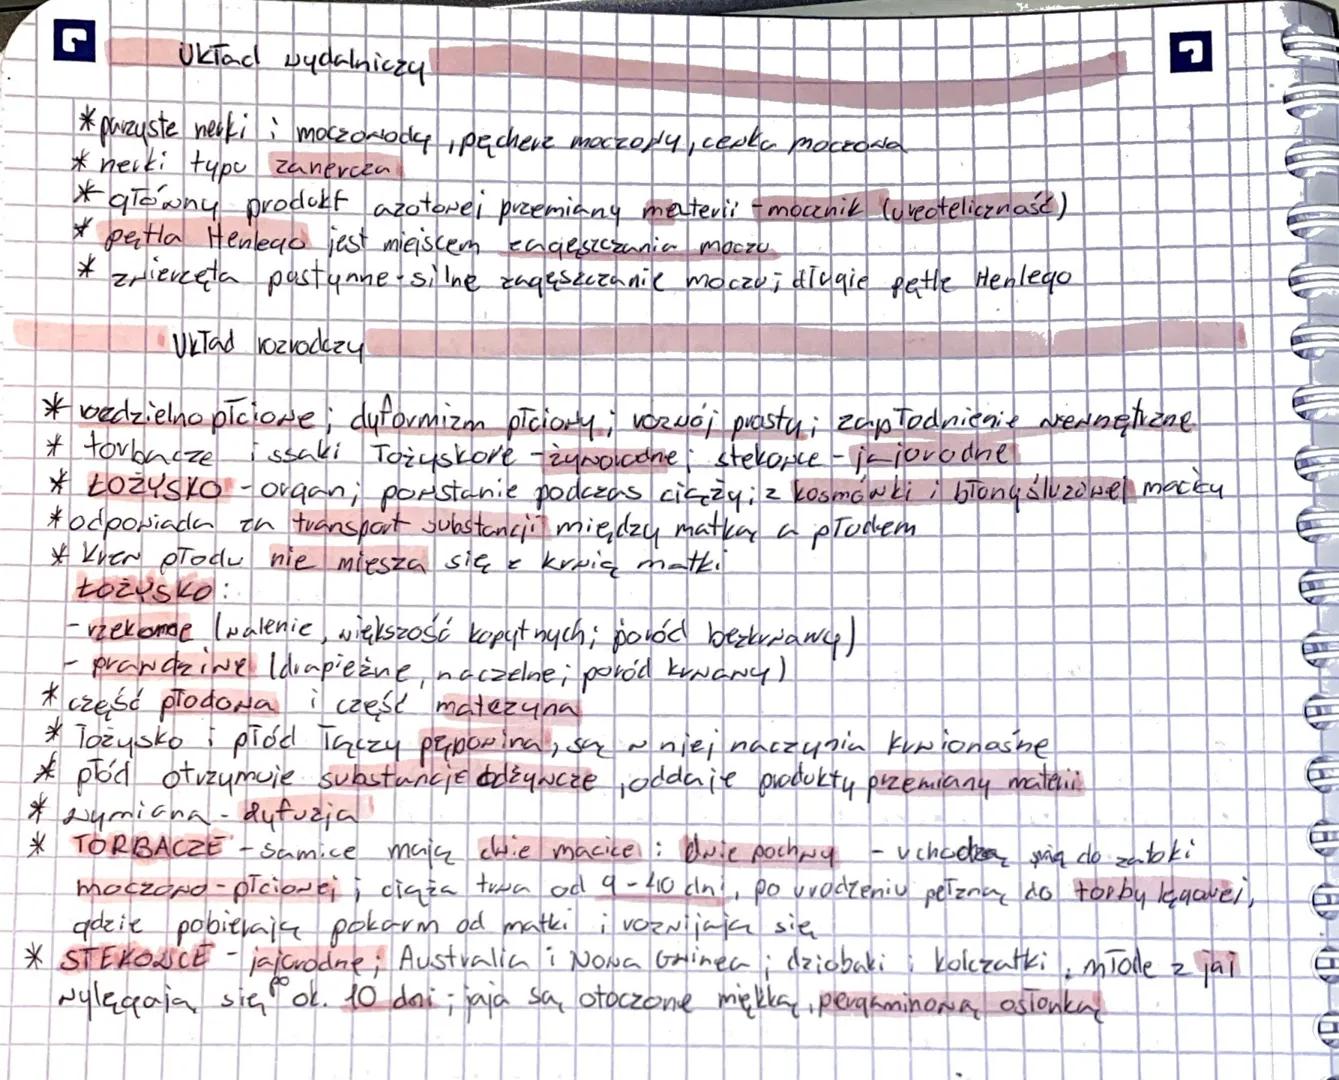 Układ wydalniczy
* parzyste nerki i moczowody, pęcherz moczowy, cewka moczowa
* nerki typu zanercza
* główny produkt azotowej przemiany materii - mocznik (ureoteliczność)
* pętla Henlego jest miejscem zagęszczania moczu
* zwierzęta pustynne - silne zagęszczanie moczu; długie pętle Henlego
Układ rozrodczy
* rozdzielnopłciowe; dyformizm płciowy; rozwój prosty; zapłodnienie wewnętrzne
* torbacze i ssaki łożyskowe - żyworodne; stekowce - jajorodne
* ŁOŻYSKO - organ; powstanie podczas ciąży; z kosmówki i błony śluzowej macicy
* odpowiada za transport substancji między matką a płodem
* krew płodu nie miesza się z krwią matki
ŁOŻYSKO:
- rzekome (walenie, większość kopytnych; poród bezkrwawy)
- prawdziwe (drapieżne, naczelne; poród krwawy)
* część płodowa i część matczyna
* łożysko i płód łączy pępowina, są w niej naczynia krwionośne
* płód otrzymuje substancje odżywcze, oddaje produkty przemiany materii
* wymiana - dyfuzja
* TORBACZE - samice mają dwie macice i dwie pochwy - uchodzą się do zatoki
moczowo-płciowej; ciąża trwa od 9-40 dni, po urodzeniu pełzną do torby lęgowej,
gdzie pobierają pokarm od matki i rozwijają się
* STEKOWCE - jajorodne; Australia i Nowa Gwinea; dziobaki i kolczatki, młode z jaj
wylęgają się po ok. 10 dni; jaja są otoczone miękką, pergaminową osłonką